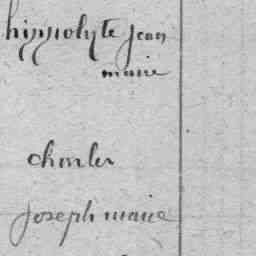 hyppolyte jean
marie
charles
joseph marie